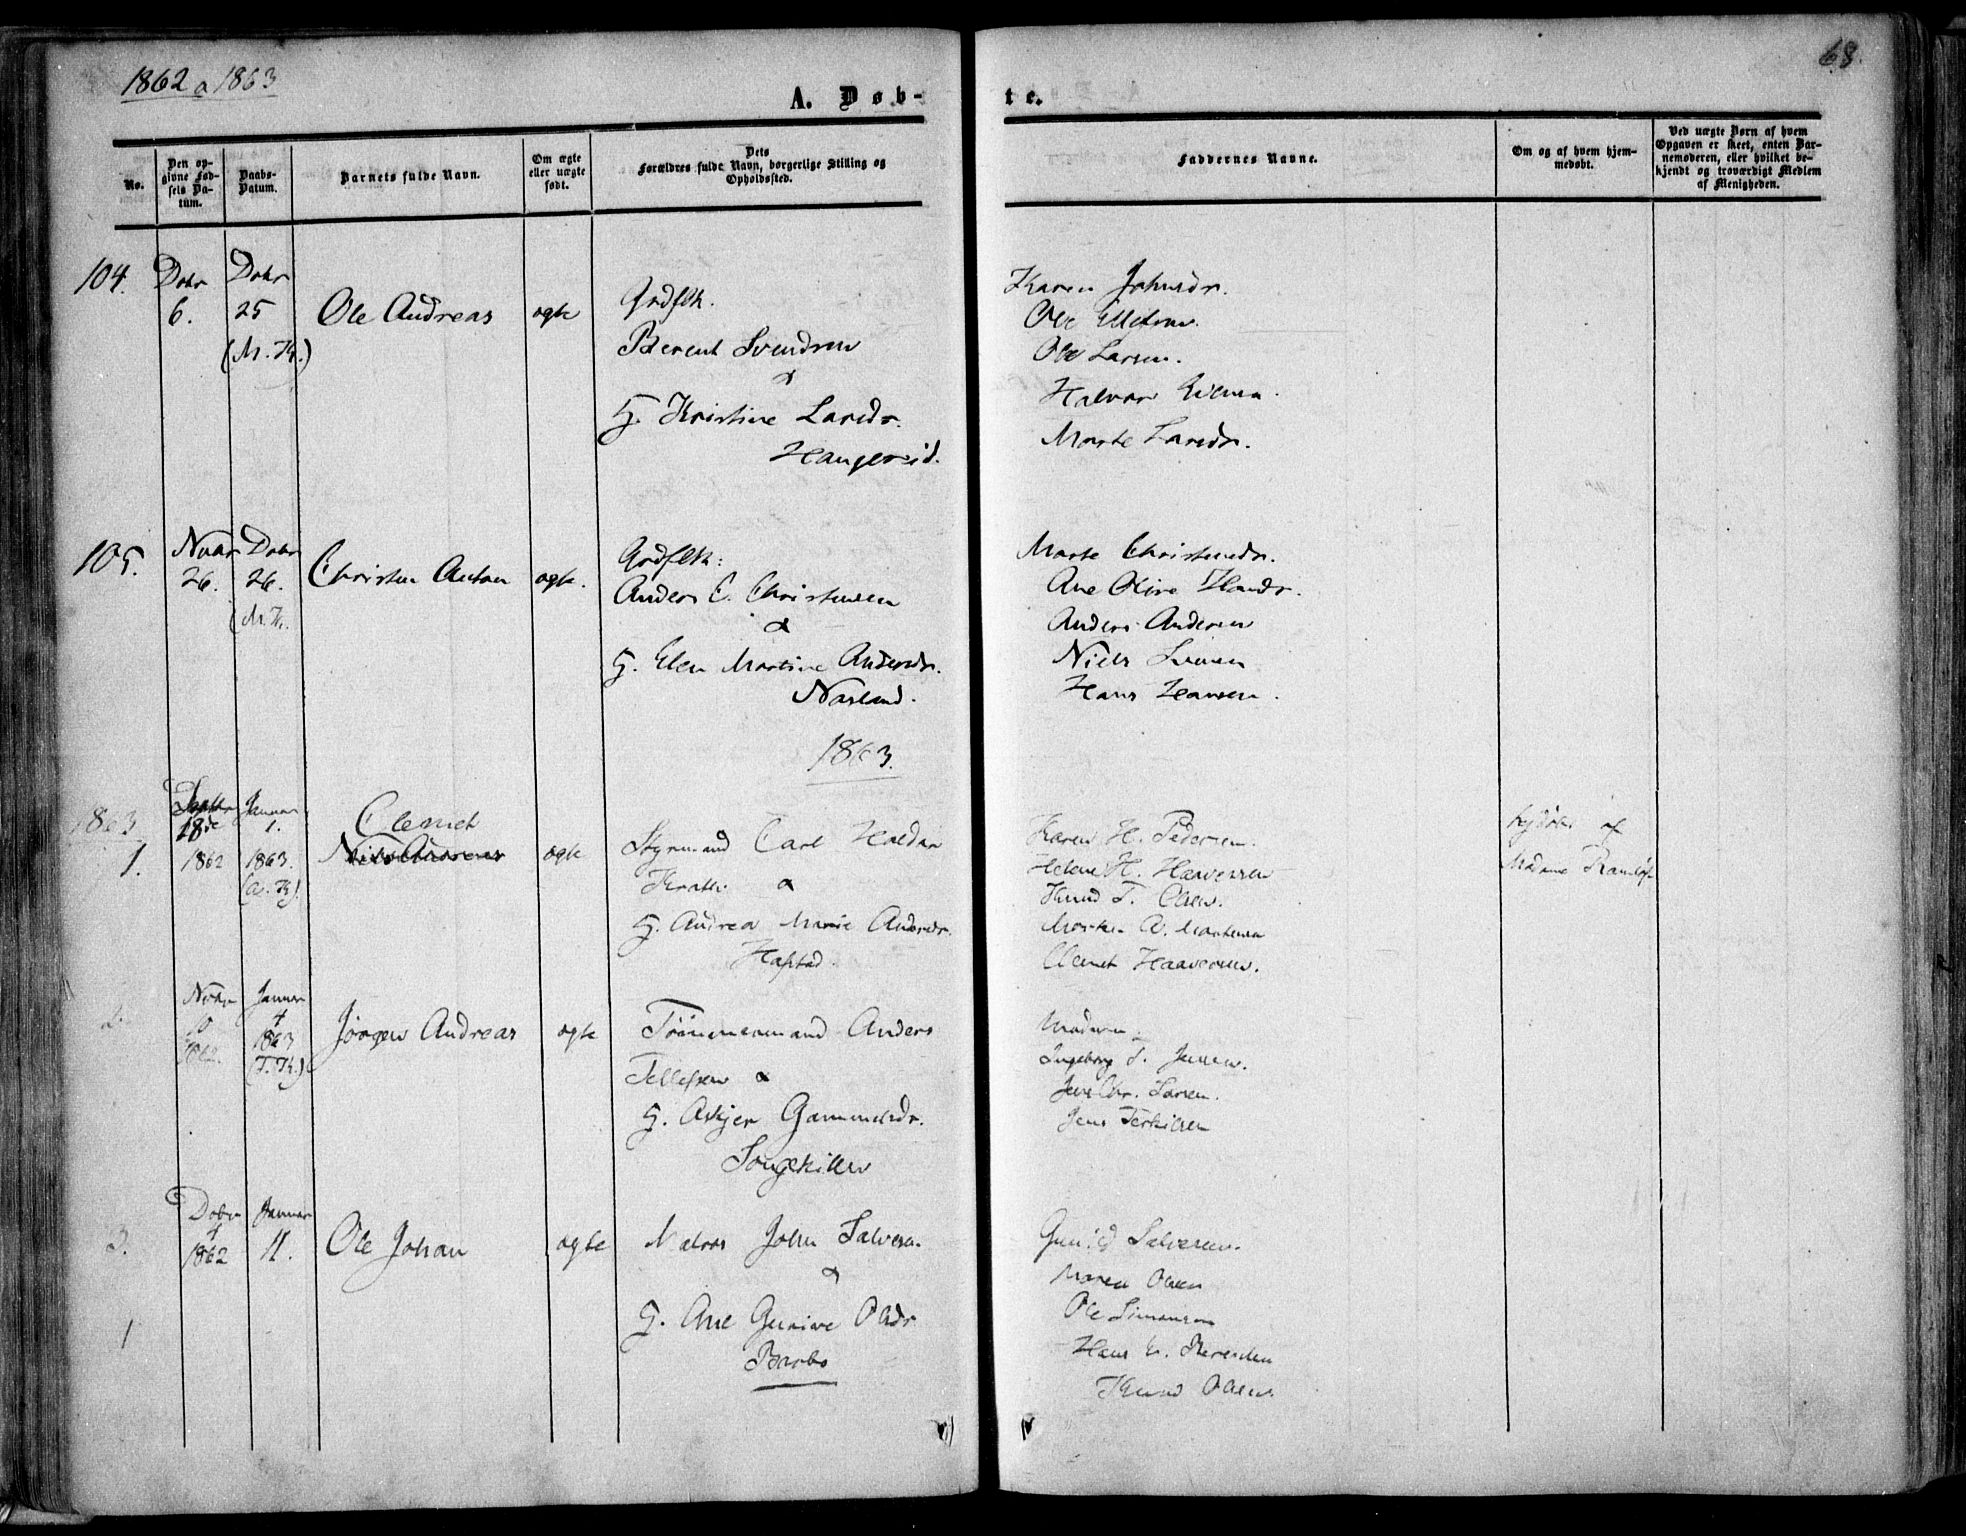 1862 a 1863
68.
A. Døb-
te.
No.
Den op-
givne Fød-
sels Da-
tum.
Daabs-
Datum.
Barnets fulde Navn.
Om ægte
eller uægte
født.
Dets
Forældres fulde Navn, borgerlige Stilling og
Opholdssted.
Faddernes Navne.
Om og af hvem hjem-
medøbt.
Ved uægte Børn af hvem
Opgaven er skeet, enten Bar-
nemoderen, eller hvilket be-
kjendt og troværdigt Medlem
af Menigheden.
104.
Dcbr
6.
Dcbr
25
(M. K.)
Ole Andreas
ægte
Grdflk.
Berent Svendsen
&
H. Kristine Larsdr.
Karen Johnsdr.
Ole Ellefsen.
Ole Larsen.
Marte Larsdr.
105.
Nvbr
26.
Dcbr
26.
(M. K.
Christen Anton
ægte.
Grdflk:
Anders C. Christensen
&
H. Elen Martine Andersdr.
Narland.
Marte Christensdr.
Ane Oline Hansdr.
Anders Andersen
Niels
Hans Hansen.
1863.
1863
1.
18de
1862
Januar
1.
1863.
Clemet
ægte
Styrmand Carl
&
H. Andrea Marie Andersdr.
Karen H. Pedersen.
Helene H.
Knud T. Olsen.
Clemet
Hjdøbt af
Madame
2.
Nvbr
1862.
Januar
4
1863
(T. K.)
Jørgen Andreas
ægte
Tømmermand Anders
Tellefsen &
H. Askjer Gammelsdr.
Songekilen
Moderen
Ingeborg T. Jensen.
Jens Chr. Larsen.
Jens Terkilsen
3.
Dcbr
4
1862
Januar
11.
Ole Johan
ægte
Matros John Salvesen
&
H. Ane Gurine Olsdr
Barbo
Gunild Salvesen.
Maren Olsen
Ole Simonsen
Knud Olsen.
1